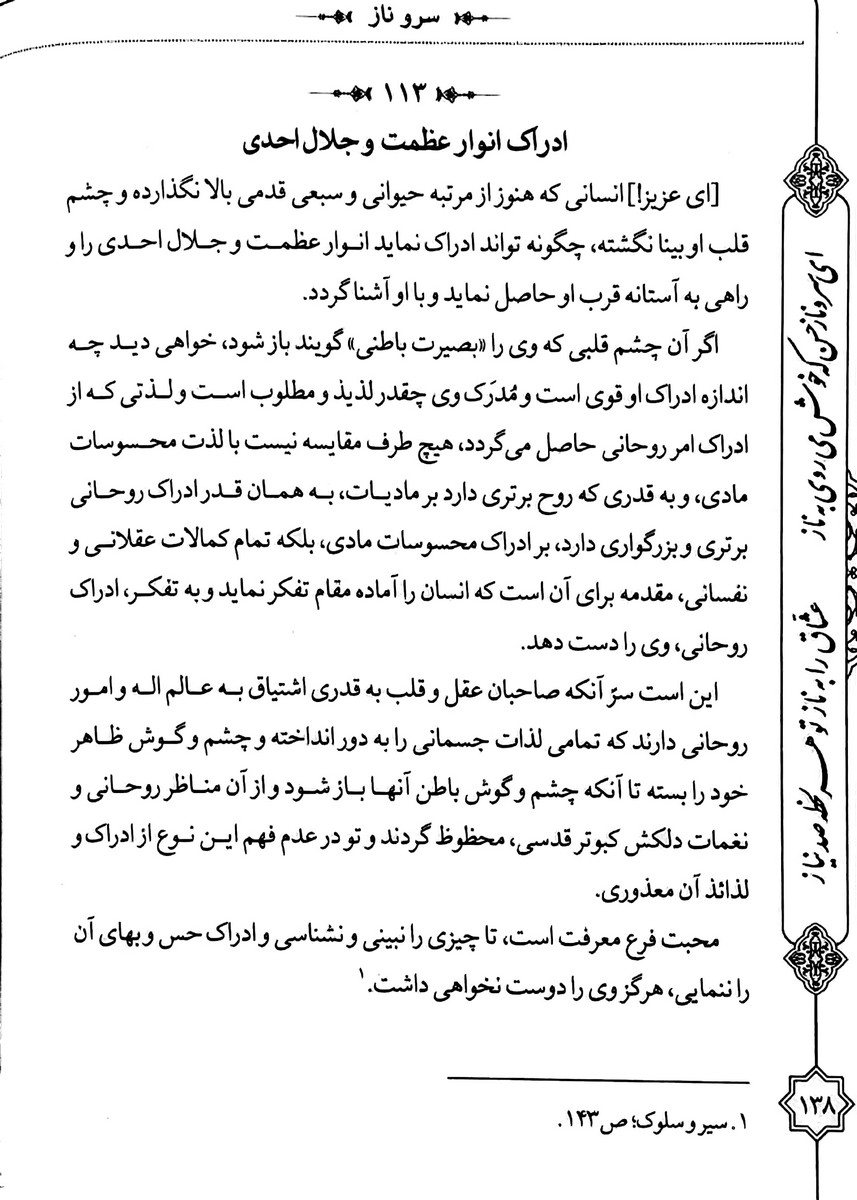 سرو ناز
۱۱۳
ادراک انوار عظمت و جلال احدی
[ای عزیز!] انسانی که هنوز از مرتبه حیوانی و سبعی قدمی بالا نگذارده و چشم
قلب او بینا نگشته، چگونه تواند ادراک نماید انوار عظمت و جلال احدی را و
راهی به آستانه قرب او حاصل نماید و با او آشنا گردد.
اگر آن چشم قلبی که وی را «بصیرت باطنی» گویند باز شود، خواهی دید چه
اندازه ادراک او قوی است و مُدرَک وی چقدر لذیذ و مطلوب است و لذتی که از
ادراک امر روحانی حاصل می‌گردد، هیچ طرف مقایسه نیست با لذت محسوسات
مادی، و به قدری که روح برتری دارد بر مادیات، به همان قدر ادراک روحانی
برتری و بزرگواری دارد، بر ادراک محسوسات مادی، بلکه تمام کمالات عقلانی و
نفسانی، مقدمه برای آن است که انسان را آماده مقام تفکر نماید و به تفکر، ادراک
روحانی، وی را دست دهد.
این است سرّ آنکه صاحبان عقل و قلب به قدری اشتیاق به عالم اله و امور
روحانی دارند که تمامی لذات جسمانی را به دور انداخته و چشم و گوش ظاهر
خود را بسته تا آنکه چشم و گوش باطن آنها باز شود و از آن مناظر روحانی و
نغمات دلکش کبوتر قدسی، محظوظ گردند و تو در عدم فهم این نوع از ادراک و
لذائذ آن معذوری.
محبت فرع معرفت است، تا چیزی را نبینی و نشناسی و ادراک حس و بهای آن
را ننمایی، هرگز وی را دوست نخواهی داشت.۱
۱. سیر و سلوک؛ ص۱۴۳.
ای سرو ناز حسن که خوش می روی به ناز
عشاق را به ناز تو هر لحظه صد نیاز
۱۳۸